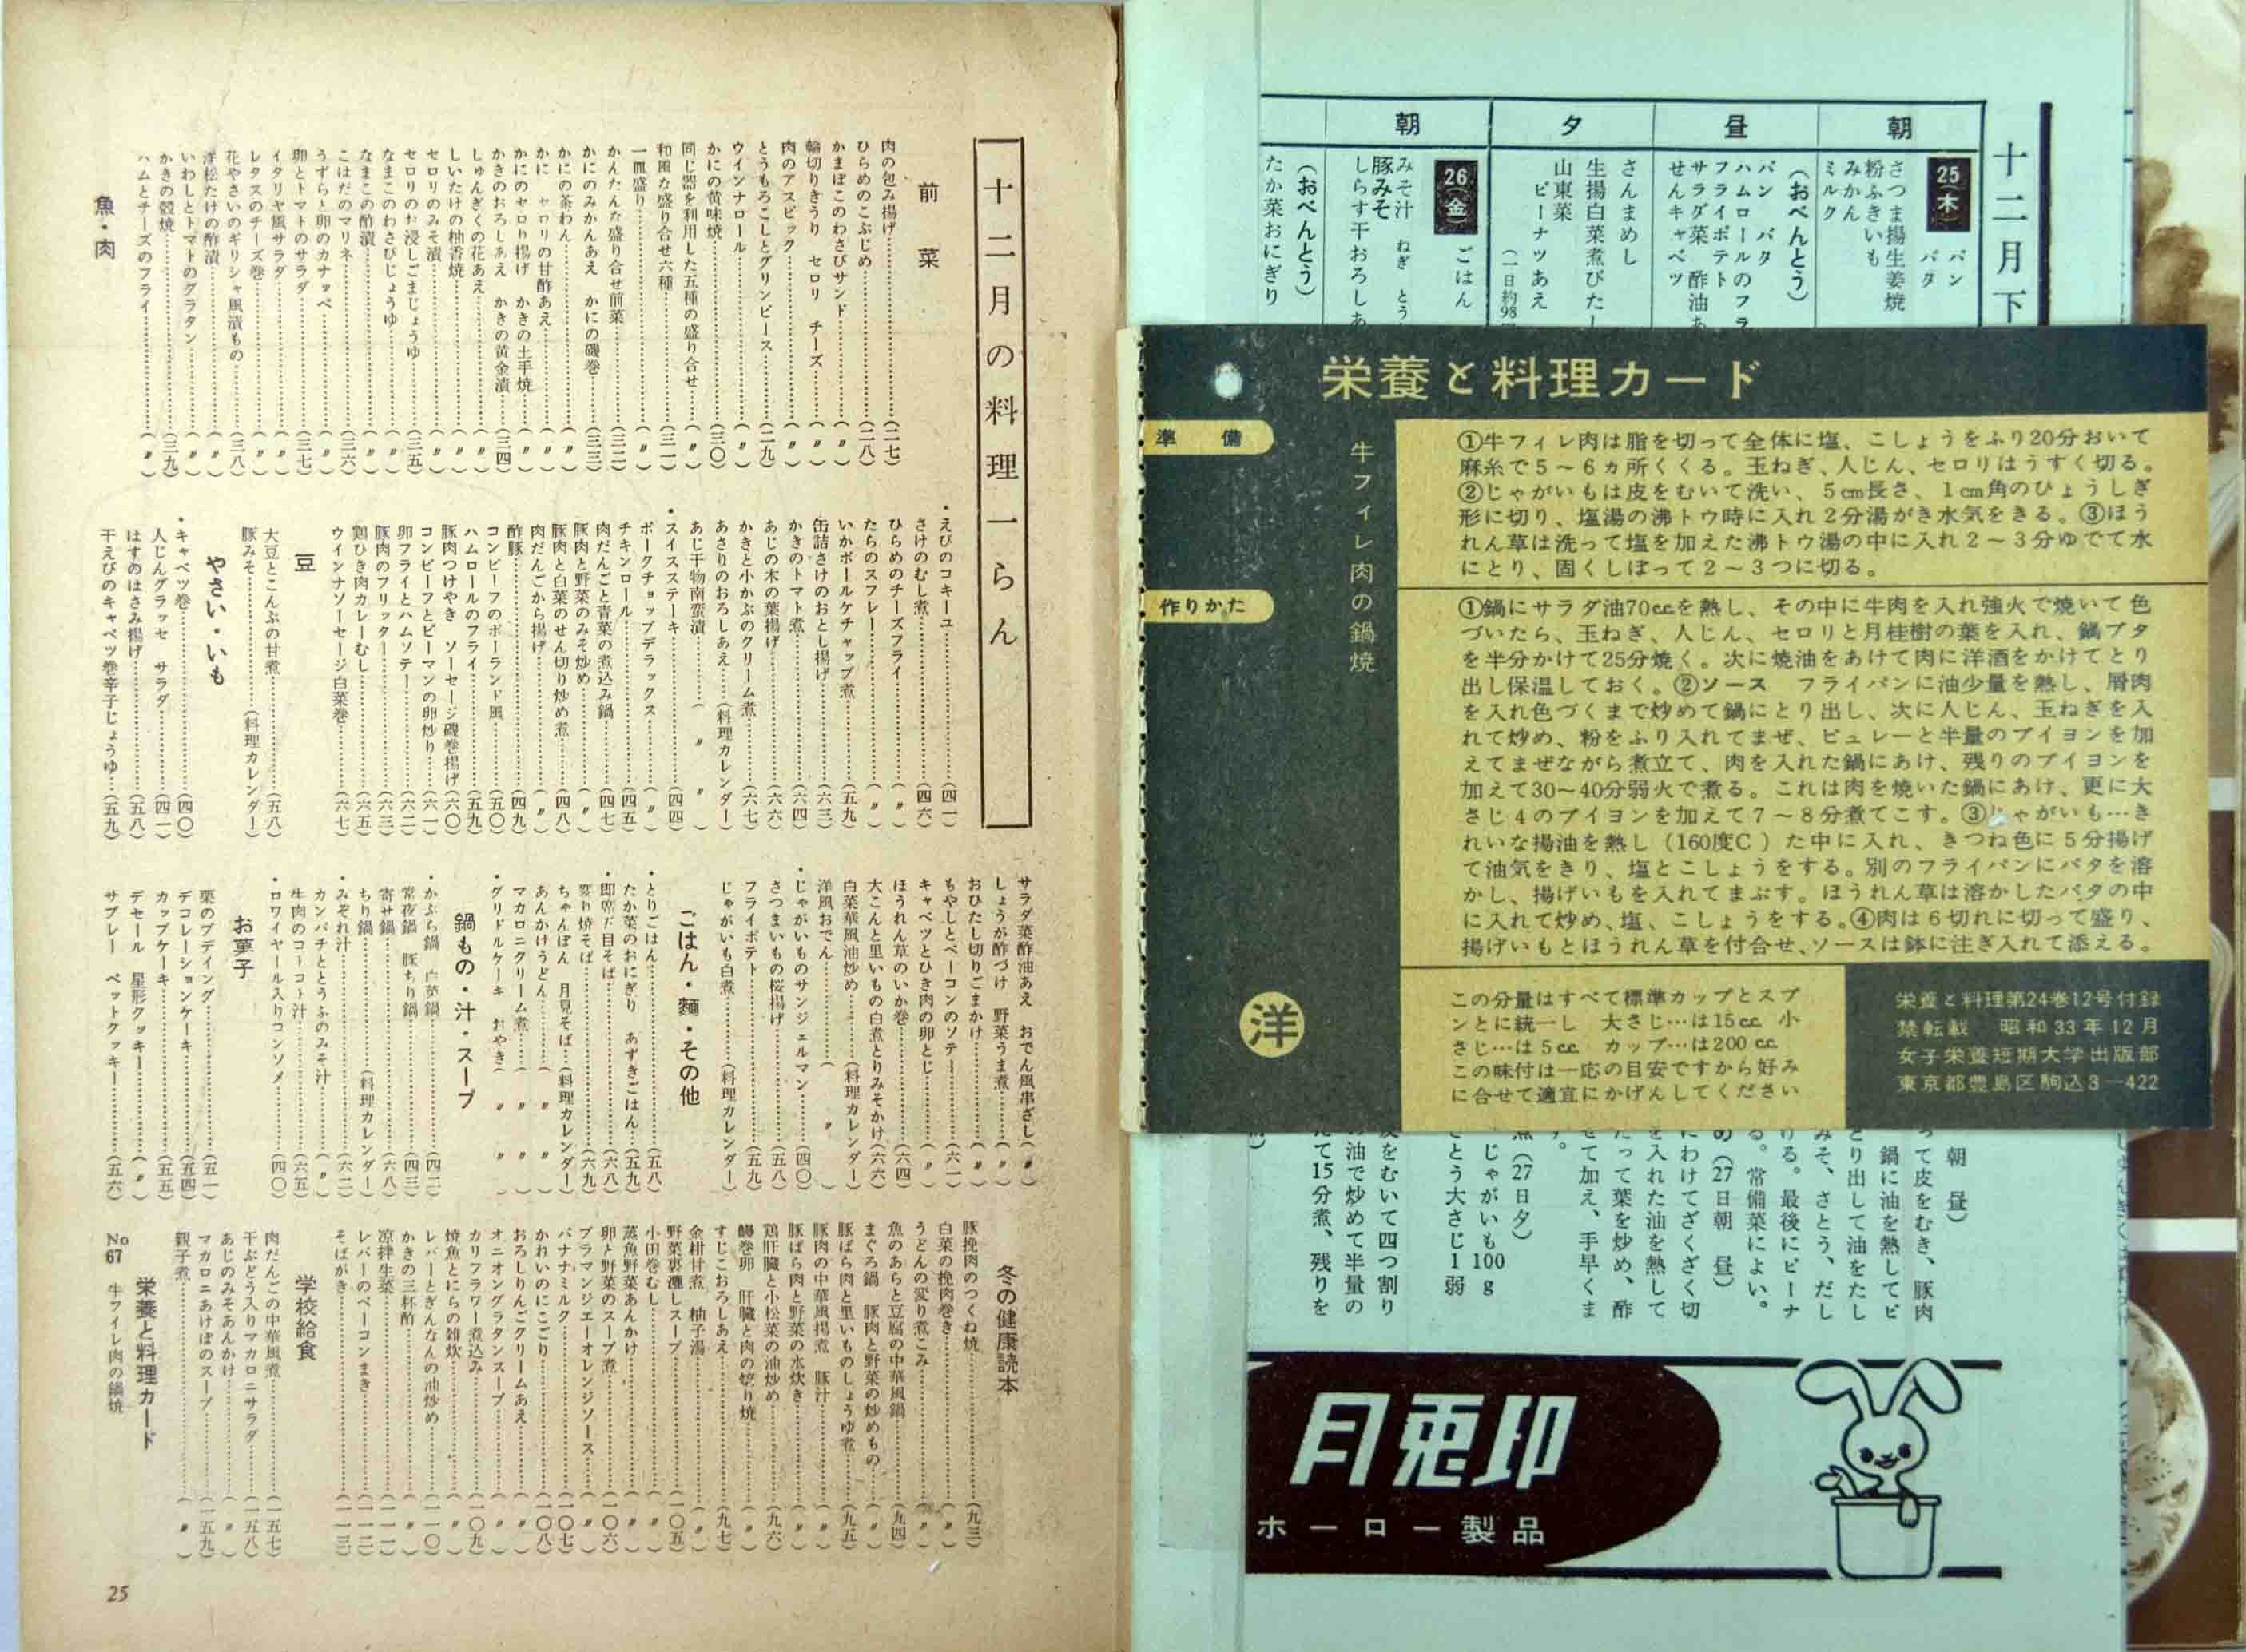 十二月下
朝
昼
夕
朝
25(木)
パン
バタ
さつま揚生姜焼
粉ふきいも
みかん
ミルク
(おべんとう)
パン　バタ
ハムロールのフラ
フライポテト
サラダ菜　酢油あ
せんキャベツ
さんまめし
生揚白菜煮びたし
山東菜
ピーナッツあえ
(一日約98
26(金)
ごはん
みそ汁　ねぎ　とう
豚みそ
しらす干おろしあ
(おべんとう)
たか菜おにぎり
栄養と料理カード
牛フィレ肉の鍋焼
準　備
①牛フィレ肉は脂を切って全体に塩、こしょうをふり20分おいて
麻糸で5～6ヵ所くくる。玉ねぎ、人じん、セロリはうすく切る。
②じゃがいもは皮をむいて洗い、5㎝長さ、1㎝角のひょうしぎ
形に切り、塩湯の沸トウ時に入れ2分湯がき水気をきる。③ほう
れん草は洗って塩を加えた沸トウ湯の中に入れ2～3分ゆでて水
にとり、固くしぼって2～3つに切る。
作りかた
①鍋にサラダ油70ccを熱し、その中に牛肉を入れ強火で焼いて色
づいたら、玉ねぎ、人じん、セロリと月桂樹の葉を入れ、鍋ブタ
を半分かけて25分焼く。次に焼油をあけて肉に洋酒をかけてとり
出し保温しておく。②ソース　フライパンに油少量を熱し、屑肉
を入れ色づくまで炒めて鍋にとり出し、次に人じん、玉ねぎを入
れて炒め、粉をふり入れてまぜ、ピュレーと半量のブイヨンを加
えてまぜながら煮立て、肉を入れた鍋にあけ、残りのブイヨンを
加えて30～40分弱火で煮る。これは肉を焼いた鍋にあけ、更に大
さじ4のブイヨンを加えて7～8分煮てこす。③じゃがいも…き
れいな揚油を熱し（160度C）た中に入れ、きつね色に5分揚げ
て油気をきり、塩とこしょうをする。別のフライパンにバタを溶
かし、揚げいもを入れてまぶす。ほうれん草は溶かしたバタの中
に入れて炒め、塩、こしょうをする。④肉は6切れに切って盛り、
揚げいもとほうれん草を付合せ、ソースは鉢に注ぎ入れて添える。
洋
この分量はすべて標準カップとスプ
ンとに統一し　大さじ…は15cc　小
さじ…は5cc　カップ…は200cc
この味付は一応の目安ですから好み
に合せて適宜にかげんしてください
栄養と料理第24巻12号付録
禁転載　昭和33年12月
女子栄養短期大学出版部
東京都豊島区駒込3―422
朝　昼)
って皮をむき、豚肉
鍋に油を熱してピ
とり出して油をたし
みそ、さとう、だし
ける。最後にピーナ
る。常備菜によい。
め(27日朝　昼)
にわけてざくざく切
を入れた油を熱して
たって葉を炒め、酢
せて加え、手早くま
す。
煮(27日夕)
じゃがいも100g
さとう大さじ1弱
皮をむいて四つ割り
油で炒めて半量の
えて15分煮、残りを
月兎印
ホーロー製品
十二月の料理一らん
前菜
肉の包み揚げ……(二七)
ひらめのこぶじめ……(二八)
かまぼこのわさびサンド……(〃)
輪切りきうり　セロリ　チーズ……(〃)
肉のアスピック……(〃)
とうもろこしとグリンピース……(二九)
ウインナロール……(〃)
かにの黄味焼……(三〇)
同じ器を利用した五種の盛り合せ……(〃)
和風な盛り合せ六種……(三一)
一皿盛り……(〃)
かんたんな盛り合せ前菜……(三二)
かにのみかんあえ　かにの磯巻……(三三)
かにの茶わん……(〃)
かに　セロリの甘酢あえ……(〃)
かにのセロリ揚げ　かきの土手焼……(〃)
かきのおろしあえ　かきの黄金漬……(三四)
しゅんぎくの花あえ……(〃)
しいたけの柚香焼……(〃)
セロリのみそ漬……(〃)
セロリのお浸しごまじょうゆ……(三五)
なまこのわさびじょうゆ……(〃)
なまこの酢漬……(〃)
こはだのマリネ……(三六)
うずらと卵のカナッペ……(〃)
卵とトマトのサラダ……(三七)
イタリヤ風サラダ……(〃)
レタスのチーズ巻……(〃)
花やさいのギリシャ風漬もの……(三八)
洋松たけの酢漬……(〃)
いわしとトマトのグラタン……(〃)
かきの殻焼……(三九)
ハムとチーズのフライ……(〃)
魚・肉
・えびのコキーユ……(四一)
さけのむし煮……(四六)
ひらめのチーズフライ……(〃)
たらのスフレー……(〃)
いかボールケチャップ煮……(五九)
缶詰さけのおとし揚げ……(六三)
かきのトマト煮……(六四)
あじの木の葉揚げ……(六六)
かきと小かぶのクリーム煮……(六七)
あさりのおろしあえ……(料理カレンダー)
あじ干物南蛮漬……(〃　〃)
・スイスステーキ……(四四)
ポークチョップデラックス……(〃)
チキンロール……(四五)
肉だんごと青菜の煮込み鍋……(四七)
豚肉と野菜のみそ炒め……(〃)
豚肉と白菜のせん切り炒め煮……(四八)
肉だんごから揚げ……(〃)
酢豚……(四九)
コンビーフのポーランド風……(五〇)
ハムロールのフライ……(五九)
豚肉つけやき　ソーセージ磯巻揚げ(六〇)
コンビーフとピーマンの卵炒り……(六一)
卵フライとハムソテー……(六二)
豚肉のフリッター……(六三)
鶏ひき肉カレーむし……(六五)
ウインナソーセージ白菜巻……(六七)
豆
大豆とこんぶの甘煮……(五八)
豚みそ……(料理カレンダー)
やさい・いも
・キャベツ巻……(四〇)
人じんグラッセ　サラダ……(四一)
はすのはさみ揚げ……(五八)
干えびのキャベツ巻辛子じょうゆ……(五九)
サラダ菜酢油あえ　おでん風串ざし(〃)
しょうが酢づけ　野菜うま煮……(〃)
おひたし切りごまかけ……(〃)
もやしとベーコンのソテー……(六一)
キャベツとひき肉の卵とじ……(〃)
ほうれん草のいか巻……(六四)
大こんと里いもの白煮とりみそかけ(六六)
白菜華風油炒め……(料理カレンダー)
洋風おでん……(〃)
・じゃがいものサンジェルマン……(四〇)
さつまいもの桜揚げ……(五八)
フライポテト……(五九)
じゃがいも白煮……(料理カレンダー)
ごはん・麵・その他
・とりごはん……(五八)
たか菜のおにぎり　あずきごはん……(五九)
・即席五目そば……(六八)
変り焼そば……(六九)
ちゃんぽん　月見そば……(料理カレンダー)
あんかけうどん……(〃)
マカロニクリーム煮……(〃　〃)
・グリドルケーキ　おやき(〃　〃)
鍋もの・汁・スープ
・かぶら鍋　白菜鍋……(四二)
常夜鍋　豚ちり鍋……(四三)
寄せ鍋……(六八)
ちり鍋……(料理カレンダー)
・みぞれ汁……(六二)
カンパチととうふのみそ汁……(〃)
牛肉のコーコト汁……(六五)
・ロワイヤール入りコンソメ……(四〇)
お菓子
栗のプディング……(五一)
デコレーションケーキ……(五四)
カップケーキ……(五五)
デセール　星形クッキー……(〃)
サブレー　ペットクッキー……(五六)
冬の健康読本
豚挽肉のつくね焼……(九三)
白菜の挽肉巻き……(〃)
うどんの変り煮こみ……(〃)
魚のあらと豆腐の中華風鍋……(九四)
まぐろ鍋　豚肉と野菜の炒めもの……(〃)
豚ばら肉と里いものしょうゆ煮……(九五)
豚肉の中華風揚煮　豚汁……(〃)
豚ばら肉と野菜の水炊き……(〃)
鶏肝臓と小松菜の油炒め……(九六)
鰻巻卵　肝臓と肉の焼り焼……(〃)
すじこおろしあえ……(九七)
金柑甘煮　柚子湯……(〃)
野菜裏漉しスープ……(一〇五)
小田巻むし……(〃)
蒸魚野菜あんかけ……(〃)
卵と野菜のスープ煮……(一〇六)
ブラマンジエーオレンジソース……(〃)
バナナミルク……(一〇七)
かれいのにこごり……(一〇八)
おろしりんごクリームあえ……(〃)
オニオングラタンスープ……(〃)
カリフラワー煮込み……(一〇九)
焼魚とにらの雑炊……(〃)
レバーとぎんなんの油炒め……(一一〇)
かきの三杯酢……(〃)
凉拌生菜……(一一一)
レバーのベーコンまき……(一一二)
そばがき……(一一三)
学校給食
肉だんごの中華風煮……(一五七)
干ぶどう入りマカロニサラダ……(一五八)
あじのみそあんかけ……(〃)
マカロニあけぼのスープ……(一五九)
親子煮……(〃)
栄養と料理カード
No67　牛フィレ肉の鍋焼
25